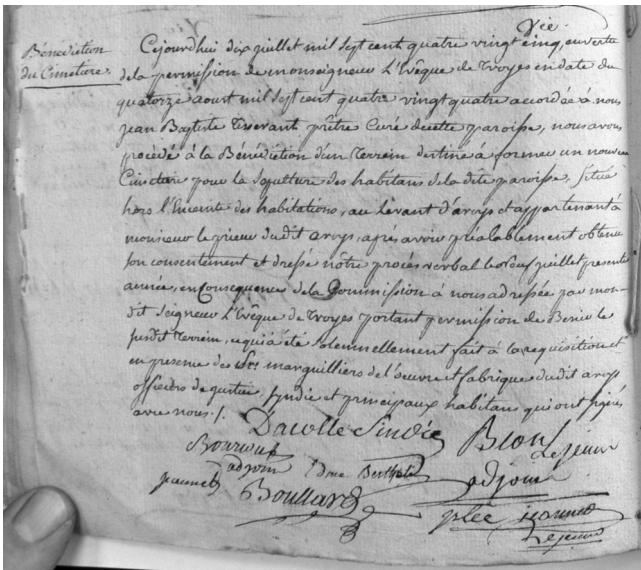 Vie.
Bénédiction
du Cimetiere.
Cejourdhui dix juillet mil sept cent quatre vingt cinq, en vertu
dela permission de monseigneur L'Evêque de Troyes en date du
quatorze aoust mil sept cent quatre vingt quatre accordée à nous
jean Baptiste prêtre Curé decette paroisse, nous avons
procédé à la Bénédiction d'un Terrein destiné à former un nouveau
Cimetiere pour la sépulture des habitans dela dite paroisse, situé
hors l'Enceinte des habitations, au Levant d'aroys et appartenant à
monsieur le prieur dudit aroys, après avoir préalablement obtenu
son consentement et dressé nôtre procès verbal le neuf juillet presente
année, en Consequence dela Commission à nous adressée par mon-
dit seigneur L'Evêque de Troyes portant permission de Benir le
susdit Terrein, cequi a été solemnellement fait à la requisition et
en presence des marguilliers de l'œuvre et fabrique dudit aroys
officiers de justice, syndic et principaux habitans qui ont signés
avec nous ./.
Dacolle Sindic
Bion
Lejeune
adjoin
Edme Berthole
adjoin
jeannet
Boullard
plée jeannet
Lejeune